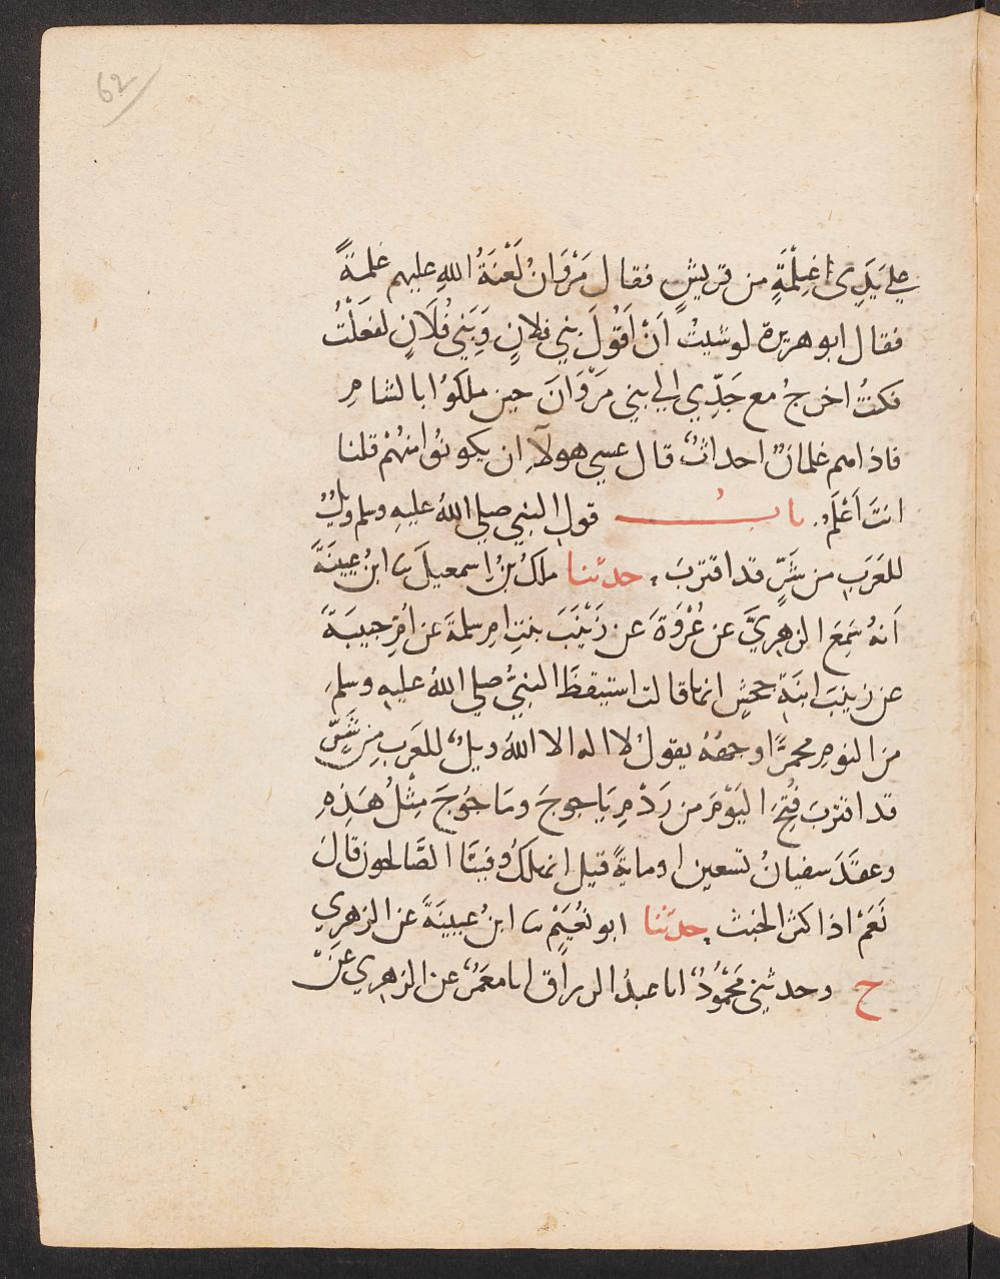 62
علي يَدَي اُغيلمَةٍ من قريشٍ فقال مَرْوَانُ لَعْنَةُ اللهِ عليهم غلمةً
فقال ابو هريرة لو شيتُ اَنْ اَقُولَ بني فلانٍ وَبَنِي فُلَانٍ لفعَلْتُ
فكنتُ اخرجُ مع جَدِّي الي بني مَرْوَانَ حين ملكوُا بالشامِ
فاذا راهم غلمانًا احداثًا قال عسي هولآءِ ان يكونوُا منهُمْ قلنا
انتَ اَعْلَمُ. بابُ قولِ النبي صلي اللهُ عليهِ وسلم ويلٌ
للعَرَبِ من شَرٍّ قد اقتربَ . حدثنا ملك بنُ اسمعيلَ ثنا ابنُ عيينَةَ
اَنهُ سَمِعَ الزهريَّ عن عُرْوَةَ عن زَيْنَبَ بنتِ امِ سلمةَ عن اُمِّ حبيبَةَ
عن زينبَ ابنَةِ جحشٍ انها قالت استيقظَ النبيُّ صلي اللهُ عليهِ وسلم
من النومِ محمرًّا وجههُ يقولُ لا اله الا اللهُ ويلٌ للعَربِ مِن شَرٍّ
قد اقتربَ فُتِحَ اليَوْمَ من رَدْمِ يَاجوجَ ومَاجُوجَ مِثْلُ هَذِهِ
وعقَدَ سفيانُ تسعين او مايةً قيل انهلكُ وفينَا الصَّالحون قالَ
نَعَمْ اذا كثر الخبث . حدثنا ابو نُعَيْمٍ ثنا ابنُ عيينَةَ عن الزهري
ح وحدثني مَحْمُودٌ انا عبدُ الرزاق انا معمَرٌ عن الزهريِ عَنْ